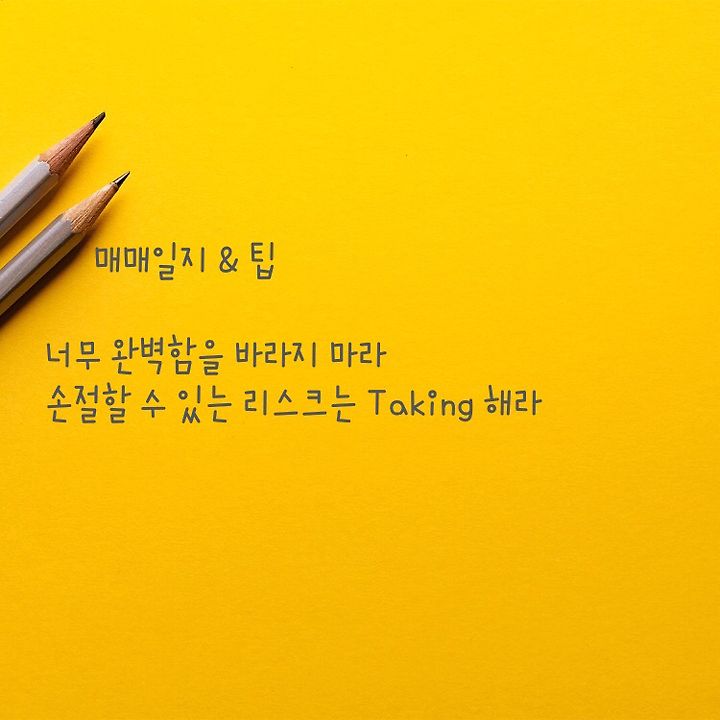 매매일지 & 팁
너무 완벽함을 바라지 마라
손절할 수 있는 리스크는 Taking 해라